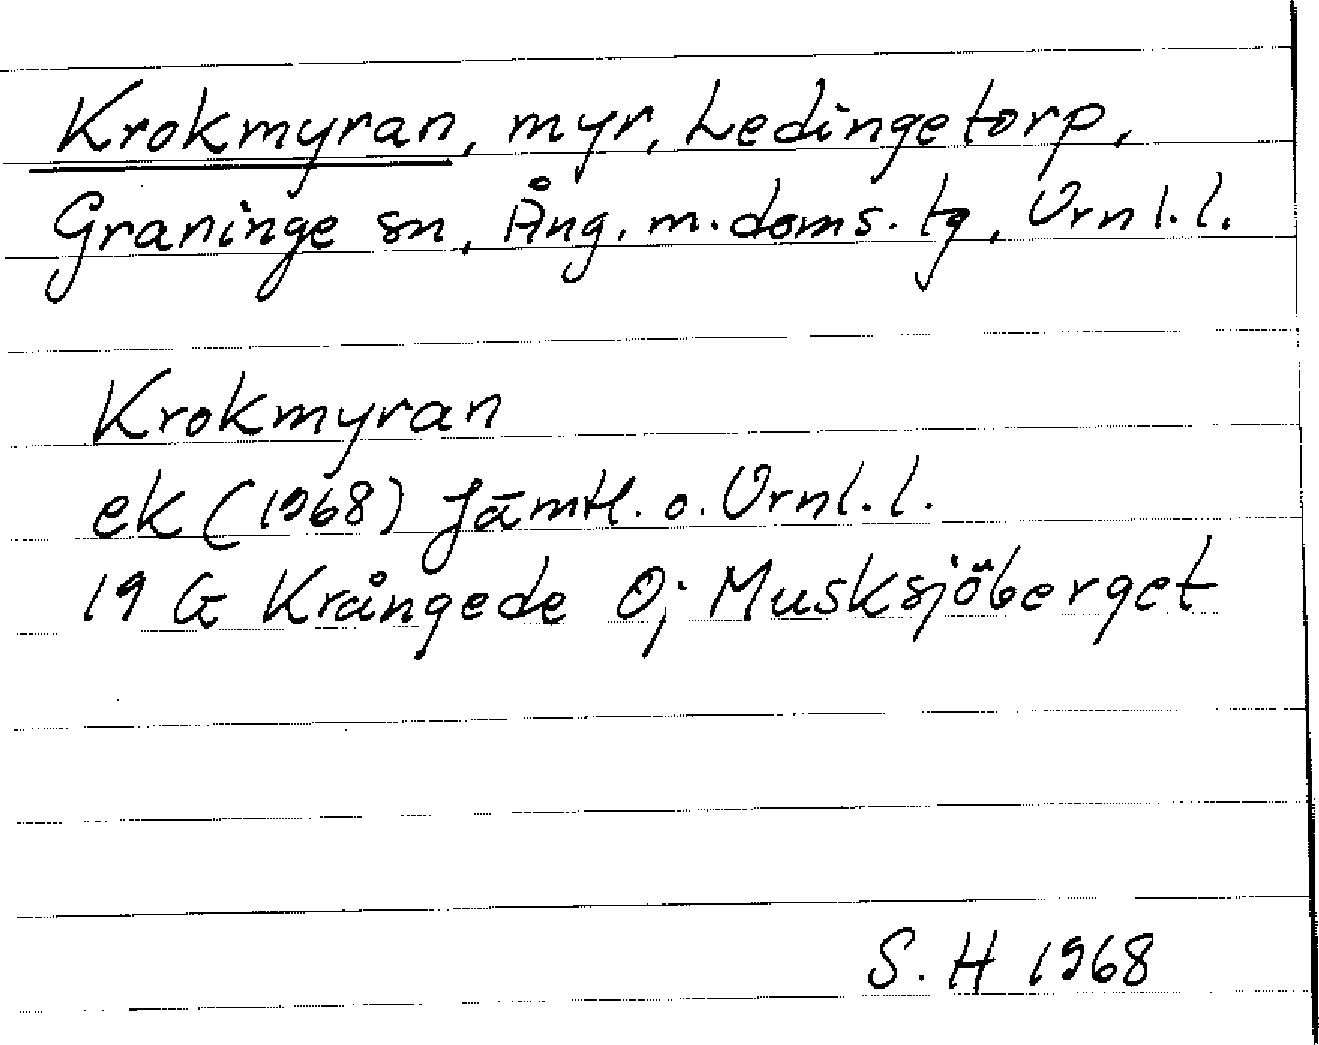 Krokmyran, myr, Ledingetorp,
Graninge sn, Ång. m. doms. tg, Vrnl. l.
Krokmyran
ek (1968) Jämtl. o. Vrnl. l.
19 G Krångede O; Musksjöberget
S. H 1968